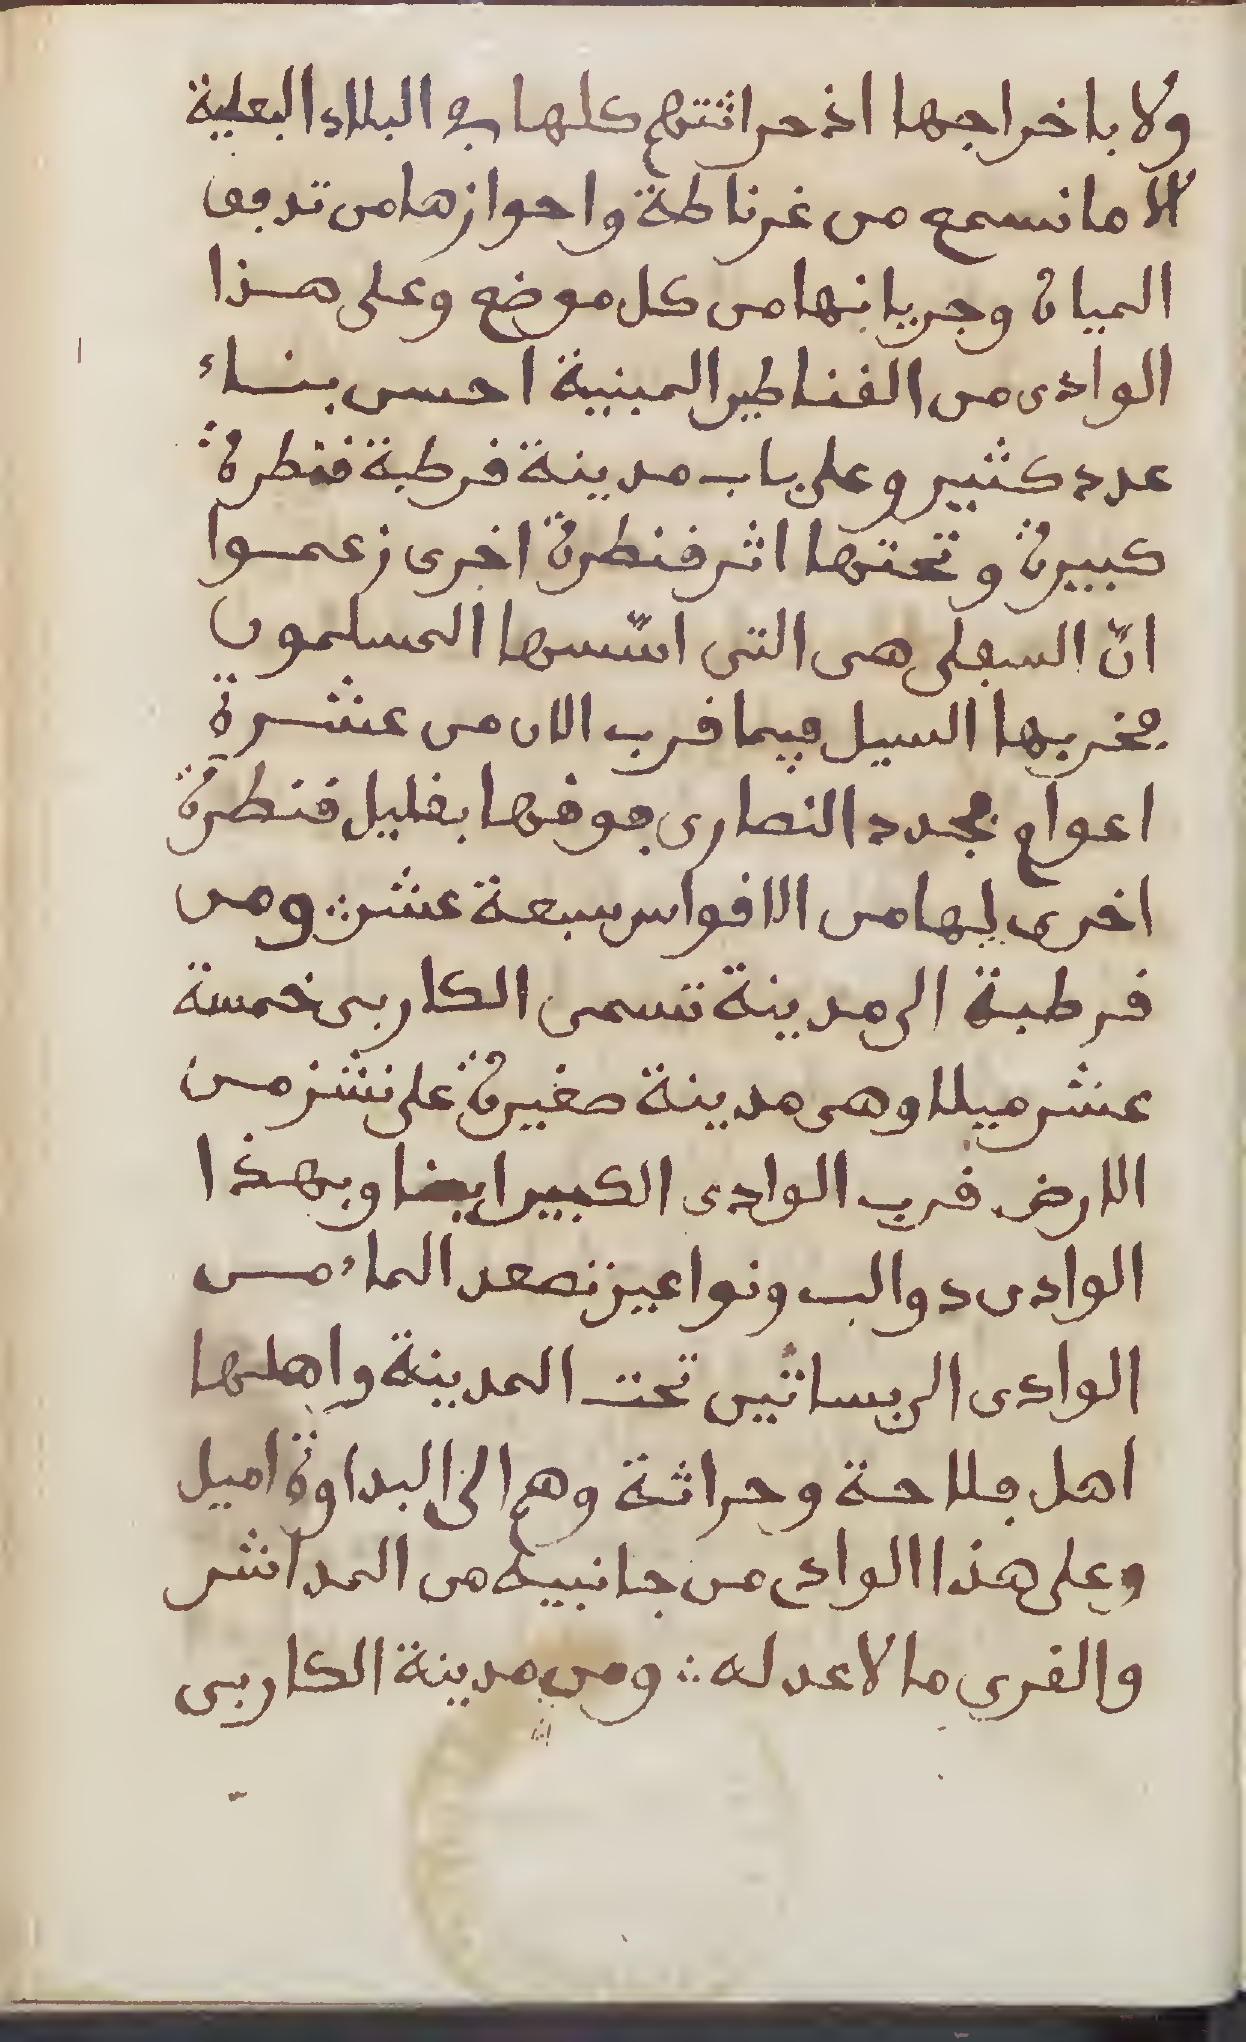 ولا باخراجها اذ حراثتهم كلها في البلاد البعلية
الا ما نسمع من غرناطة واحوازها من تدفق
المياه وجريانها من كل موضع وعلى هذا
الوادى من القناطير المبنية احسن بناء
عدد كثير وعلى باب مدينة قرطبة قنطرة
كبيرة وتحتها اثر قنطرة اخرى زعموا
انّ السفلى هى التى اسّسها المسلمون
فخربها السيل فيما قرب الان من عشرة
اعوام فجدد النصارى فوقها بقليل قنطرة
اخرى لها من الاقواس سبعة عشر ؞ ومن
قرطبة الى مدينة تسمى الكاربى خمسة
عشر ميلا وهى مدينة صغيرة على نشز من
الارض قرب الوادى الكبير ايضا وبهذا
الوادى دوالب ونواعير تصعد الماء من
الوادى الى بساتين تحت المدينة واهلها
اهل فلاحة وحراثة وهم الى البداوة اميل
وعلى هذا الوادى من جانبيه من المداشر
والقرى ما لا عد له ؞ ومن مدينة الكاربى